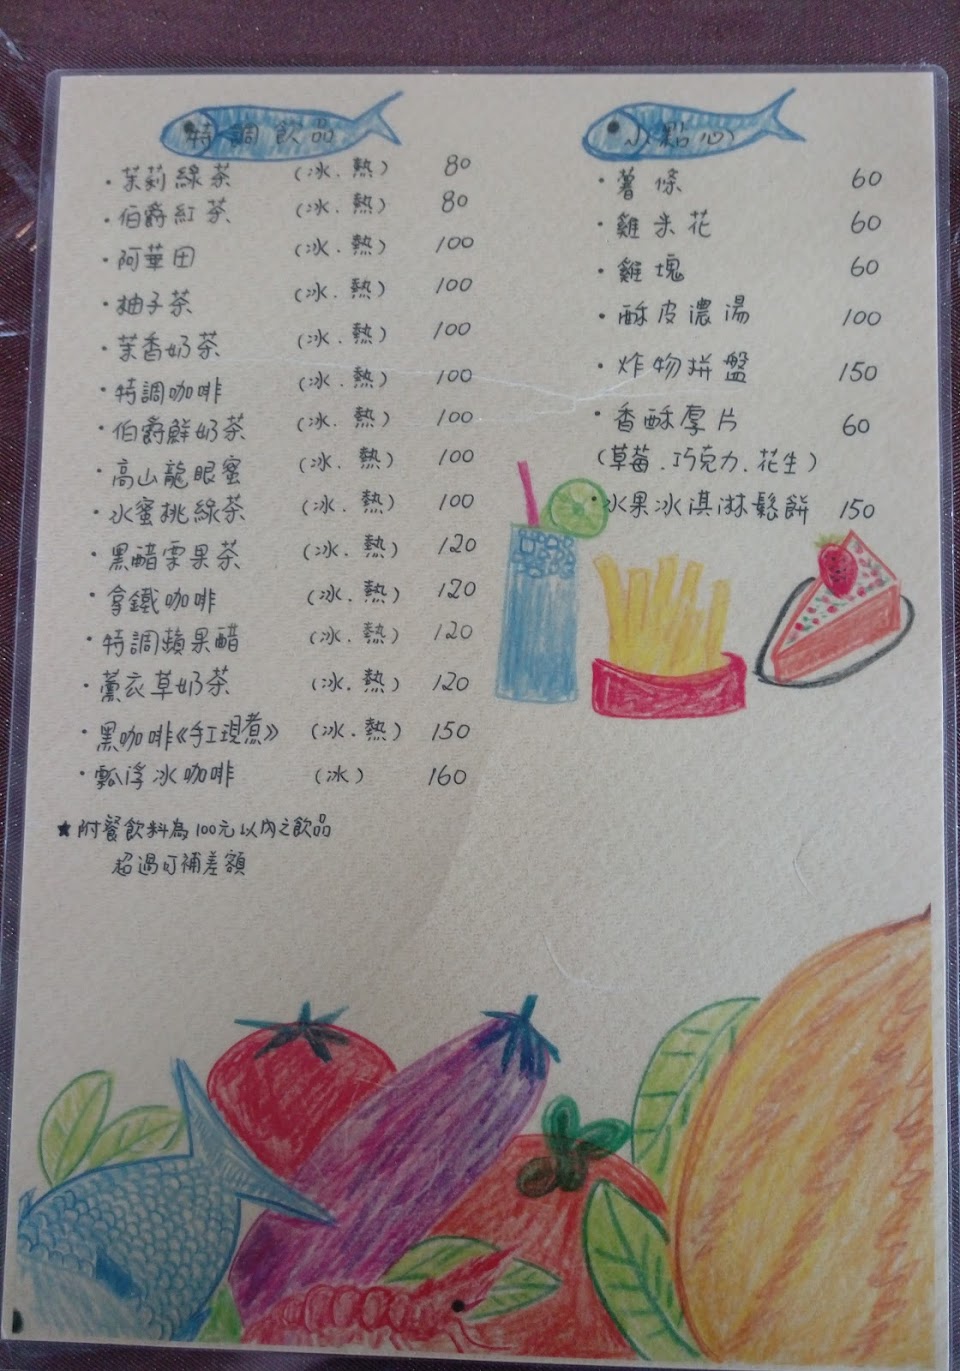 特調飲品
・茉莉綠茶 (冰.熱) 80
・伯爵紅茶 (冰.熱) 80
・阿華田 (冰.熱) 100
・柚子茶 (冰.熱) 100
・茉香奶茶 (冰.熱) 100
・特調咖啡 (冰.熱) 100
・伯爵鮮奶茶 (冰.熱) 100
・高山龍眼蜜 (冰.熱) 100
・水蜜桃綠茶 (冰.熱) 100
・黑醋栗果茶 (冰.熱) 120
・拿鐵咖啡 (冰.熱) 120
・特調蘋果醋 (冰.熱) 120
・薰衣草奶茶 (冰.熱) 120
・黑咖啡《手工現煮》 (冰.熱) 150
・飄浮冰咖啡 (冰) 160
★附餐飲料為100元以內之飲品
超過可補差額
小點心
・薯條 60
・雞米花 60
・雞塊 60
・酥皮濃湯 100
・炸物拼盤 150
・香酥厚片 60
(草莓.巧克力.花生)
・水果冰淇淋鬆餅 150